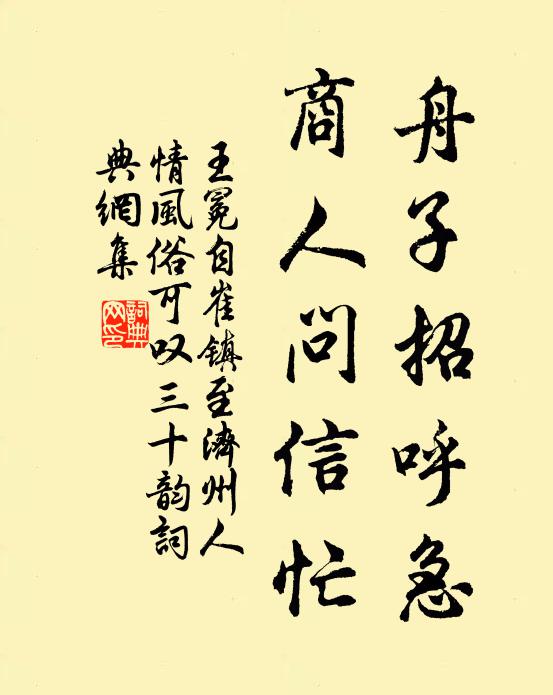 舟子招呼急
商人問信忙
王冕自崔鎮至濟州人
情風俗可叹三十韵詞
典網集
詞典
网印